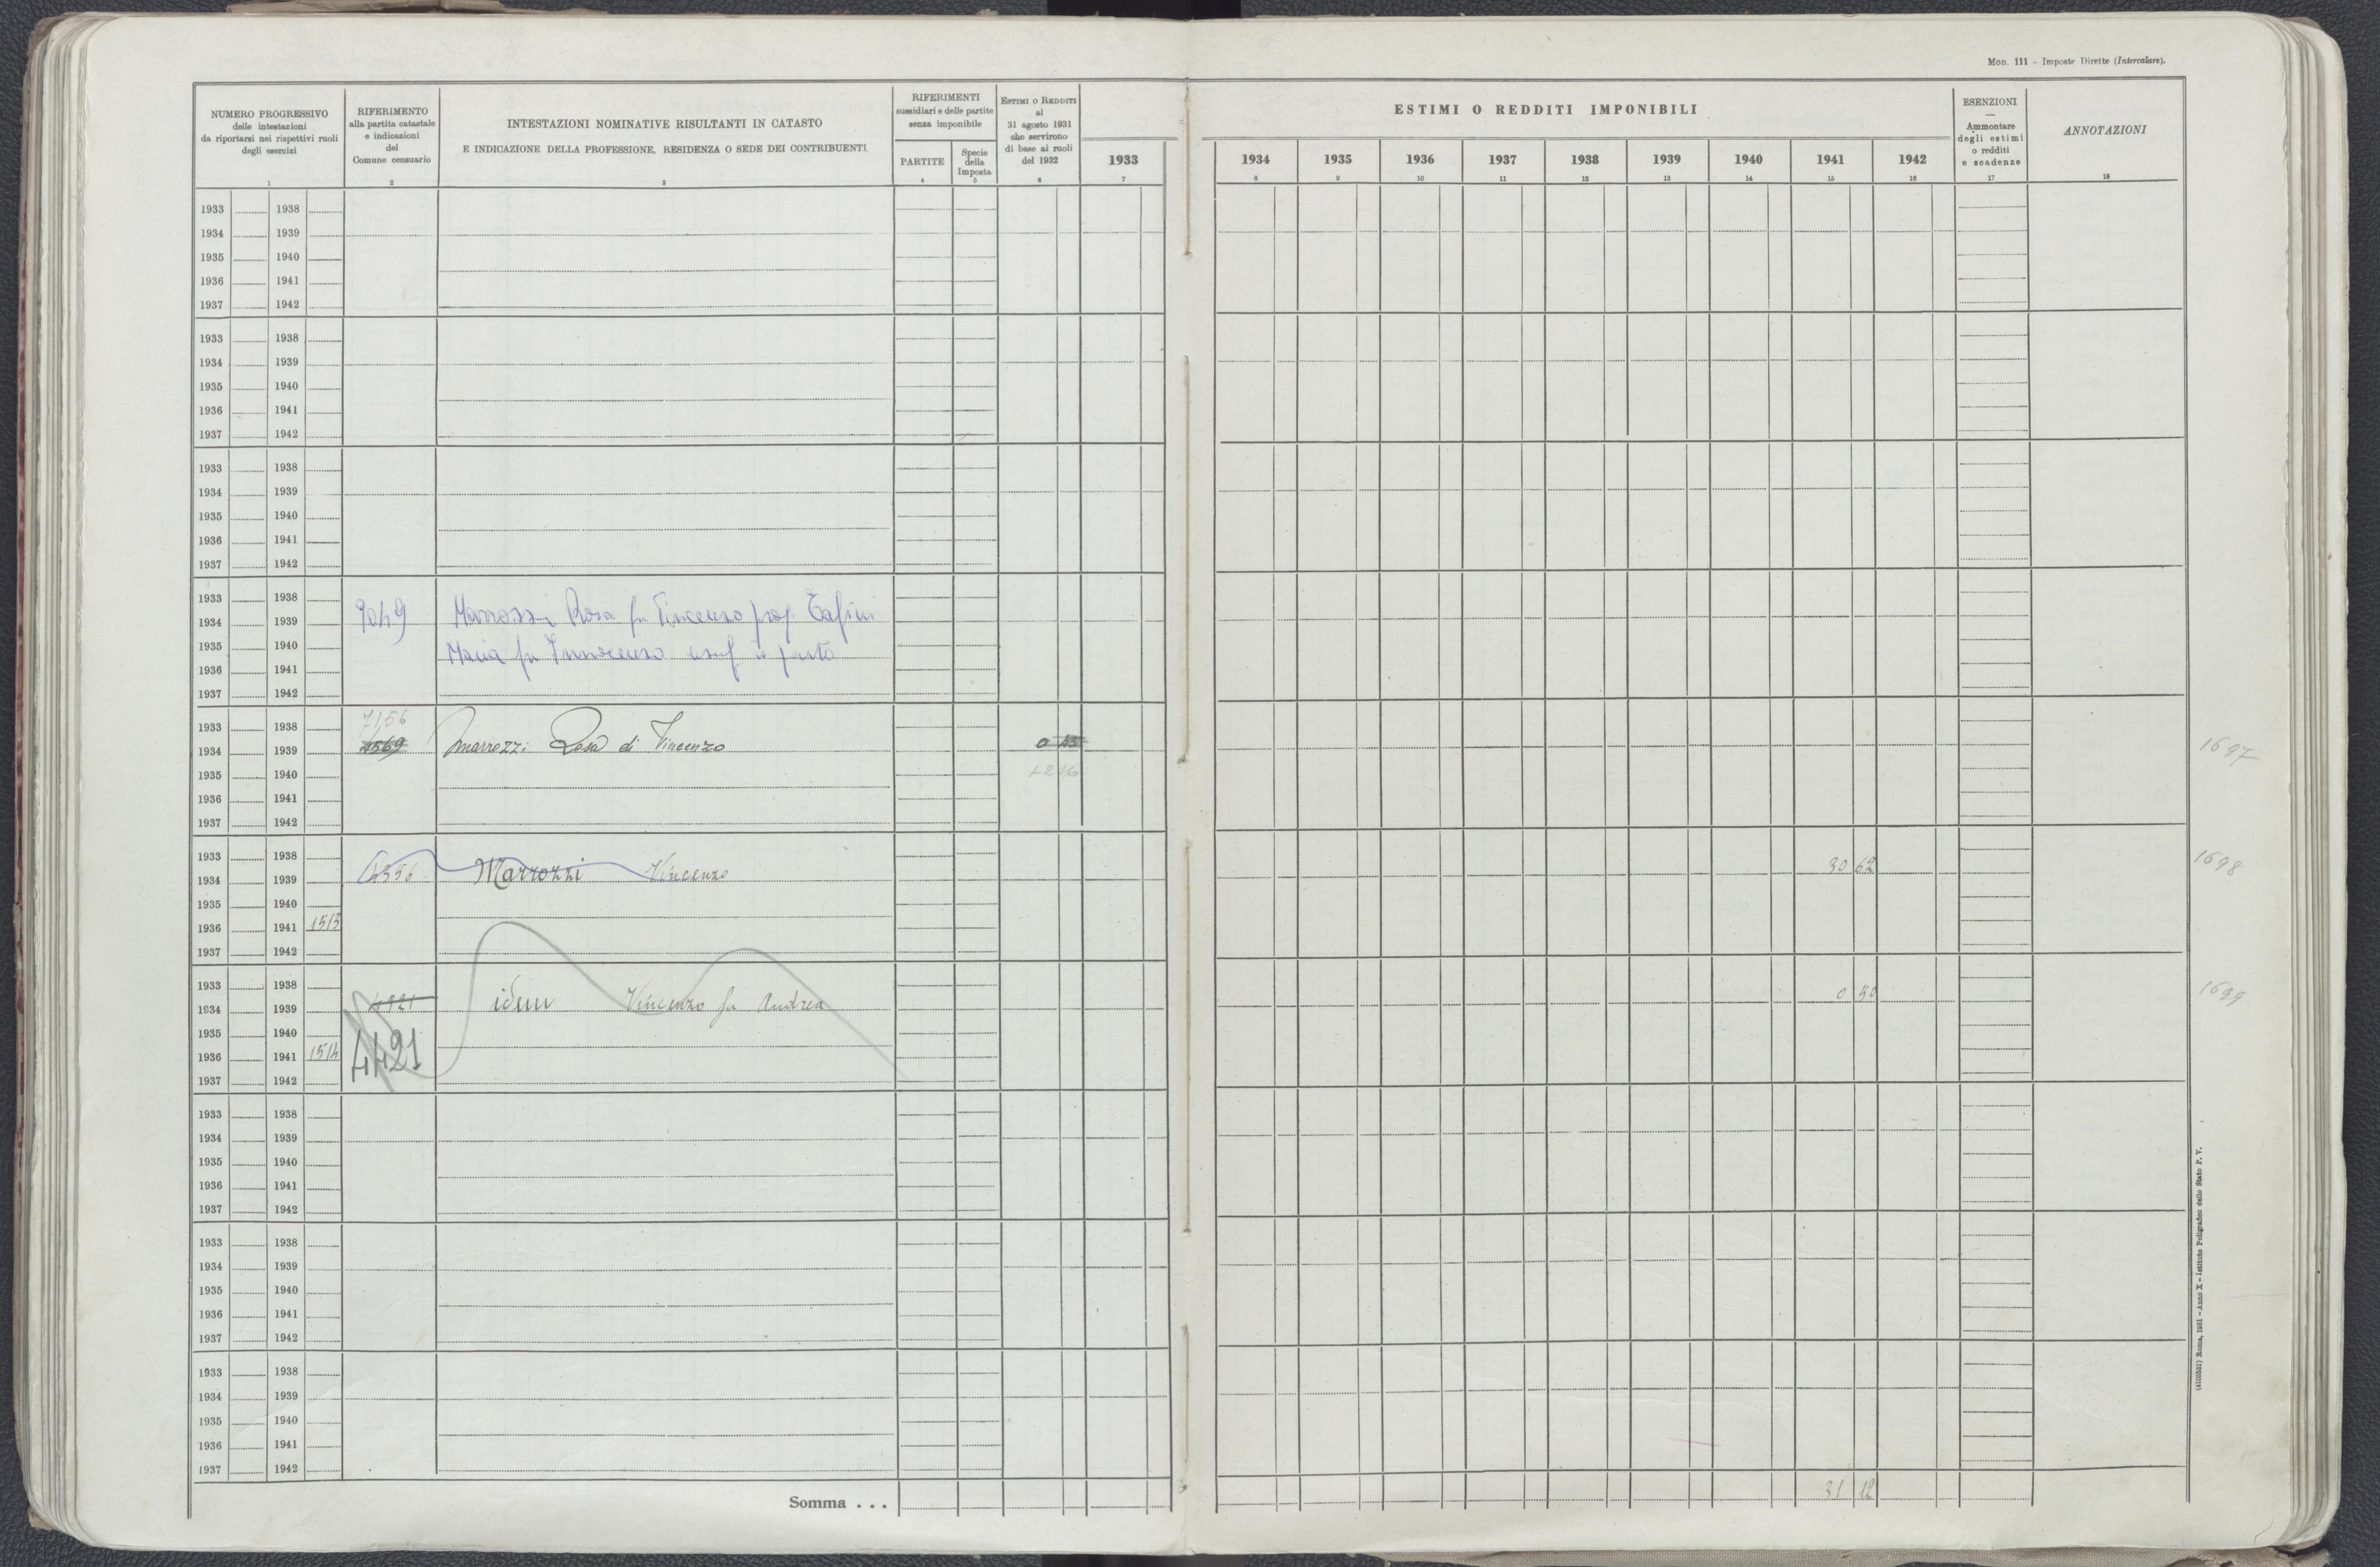 Mod. 111 - Imposte Dirette (Intercalare).
NUMERO PROGRESSIVO
delle intestazioni
da riportarsi nei rispettivi ruoli
degli esercizi
1
RIFERIMENTO
alla partita catastale
e indicazioni
del
Comune censuario
2
INTESTAZIONI NOMINATIVE RISULTANTI IN CATASTO
E INDICAZIONE DELLA PROFESSIONE, RESIDENZA O SEDE DEI CONTRIBUENTI
3
RIFERIMENTI
sussidiari e delle partite
senza imponibile
PARTITE
4
Specie
della
Imposta
5
Estimi o Redditi
al
31 agosto 1931
che servirono
di base ai ruoli
del 1932
6
1933
7
ESTIMI O REDDITI IMPONIBILI
1934 1935 1936 1937 1938 1939 1940 1941 1942
8 9 10 11 12 13 14 15 16
ESENZIONI
—
Ammontare
degli estimi
o redditi
e scadenze
17
ANNOTAZIONI
18
1933 1938
1934 1939
1935 1940
1936 1941
1937 1942
1933 1938
1934 1939
1935 1940
1936 1941
1937 1942
1933 1938
1934 1939
1935 1940
1936 1941
1937 1942
1933 1938
1934 1939 9049 Marrozzi Rosa fu Vincenzo prop. Tassini
1935 1940 Maria fu Innocenzo usuf in parte
1936 1941
1937 1942
1933 1938 7156
1934 1939 4569 Marrozzi Rosa di Vincenzo 0 1697
1935 1940
1936 1941
1937 1942
1933 1938
1934 1939 4356 Marrozzi Vincenzo 30 62 1698
1935 1940
1936 1941 1513
1937 1942
1933 1938
1934 1939 4821 idem Vincenzo fu Andrea 0 50 1699
1935 1940
1936 1941 1514 4421
1937 1942
1933 1938
1934 1939
1935 1940
1936 1941
1937 1942
1933 1938
1934 1939
1935 1940
1936 1941
1937 1942
1933 1938
1934 1939
1935 1940
1936 1941
1937 1942
Somma . . . 31 12
(4103551) Roma, 1931 - Anno X - Istituto Poligrafico dello Stato P. V.